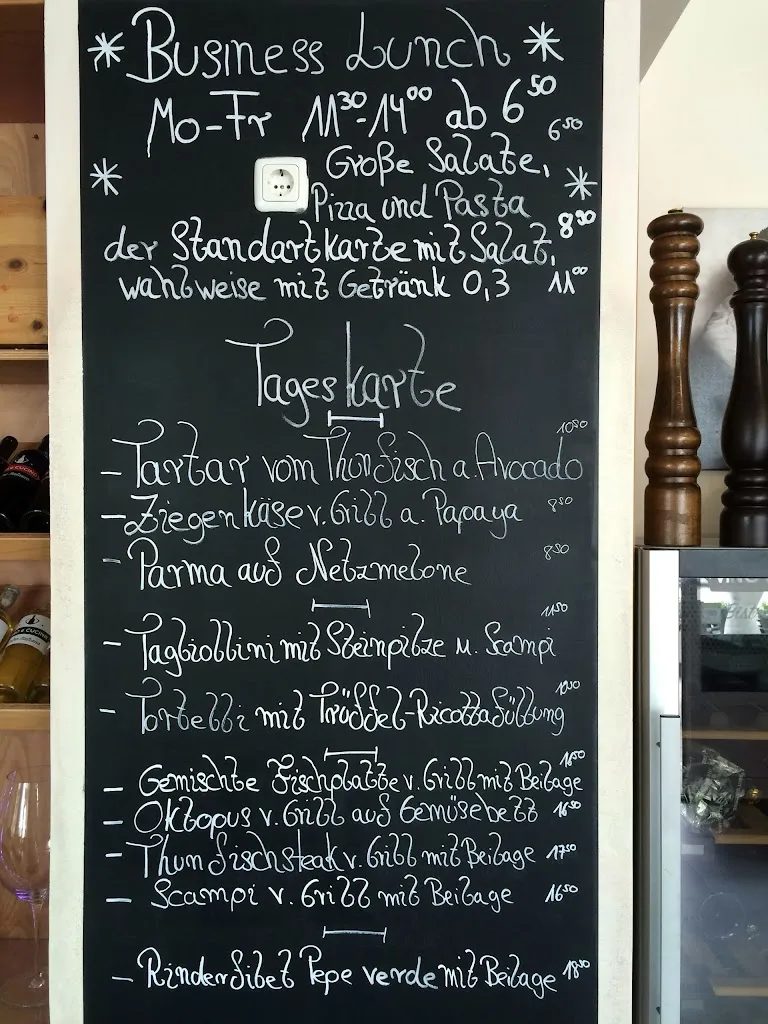 Business Lunch
Mo-Fr 11³⁰-14⁰⁰ ab 6⁵⁰
Große Salate, 6⁵⁰
Pizza und Pasta
der Standartkarte mit Salat, 8⁹⁰
wahlweise mit Getränk 0,3 11⁰⁰
Tageskarte
- Tartar vom Thunfisch a. Avocado 10⁹⁰
- Ziegenkäse v. Grill a. Papaya 8⁵⁰
- Parma auf Netzmelone 8⁵⁰
- Tagliollini mit Steinpilze u. Scampi 11⁵⁰
- Tortelli mit Trüffel-Ricottafüllung
- Gemischte Fischplatte v. Grill mit Beilage
- Oktopus v. Grill auf Gemüsebett 16⁵⁰
- Thunfischsteak v. Grill mit Beilage 17⁵⁰
- Scampi v. Grill mit Beilage 16⁵⁰
- Rinderfilet Pepe verde mit Beilage